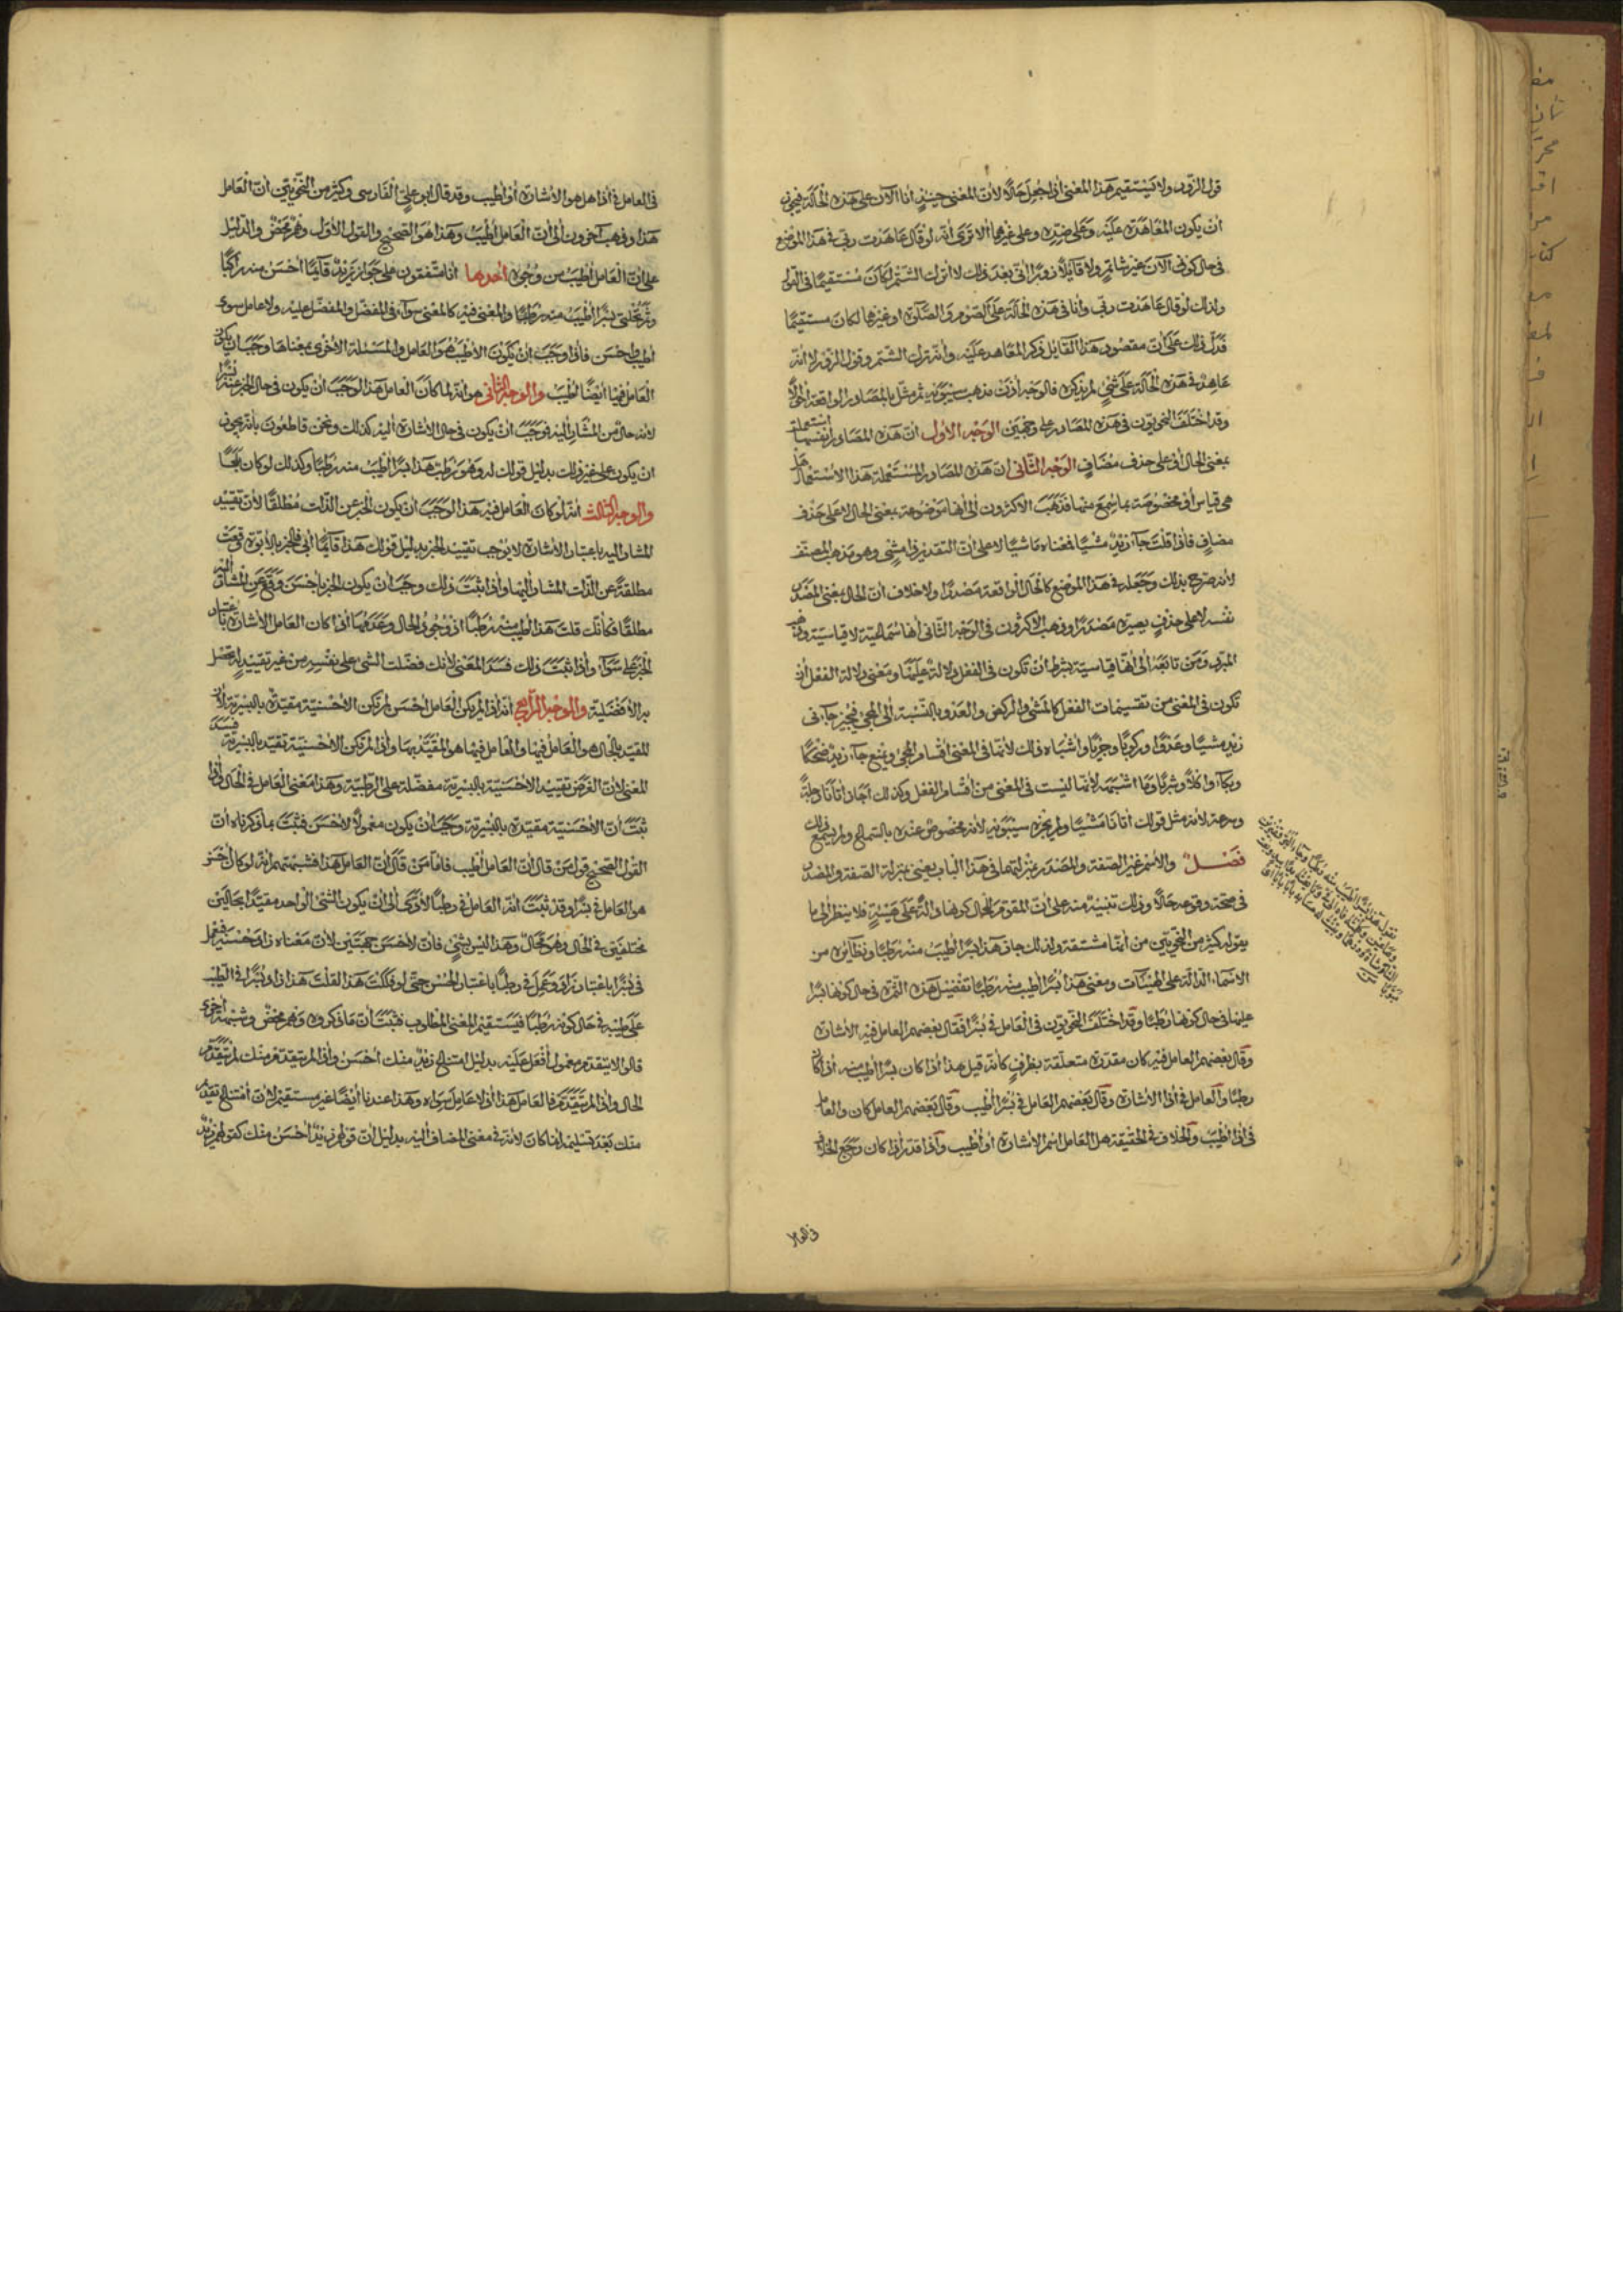 قول الزور ولا يستقيم هذا المعنى اذا جعل حالا لأن المعنى حينئذ أنا الآن على هذه الحالة فيجوز
أن يكون المعاهدة عليه وعلى ضده وعلى غيرها ألا ترى أنه لو قال عاهدت ربي في هذا الموضع
في حال كوني الآن غير شاتم ولا قائلا زورا أني بعد ذلك لا أترك الشتم لكان مستقيما في القول
ولذلك لو قال عاهدت ربي وأنا في هذه الحالة على الصوم والصلوة أو غيرها لكان مستقيما
فدل ذلك على أن مقصود هذا القائل ذكر المعاهد عليه وأنه ترك الشتم وقول الزور لا أنه
عاهد في هذه الحالة على شئ لم يذكره فالوجه اذن مذهب سيبويه ثم مثل بالمصادر الواقعة أحوالا
وقد اختلف النحويون في هذه المصادر على وجهين الوجه الأول أن هذه المصادر أنفسها استعملت
بمعنى الحال أو على حذف مضاف الوجه الثاني ان هذه المصادر المستعملة هذا الاستعمال هل
هي قياس أو مخصوصة بما سمع منها فذهب الاكثرون الى أنها موضوعة بمعنى الحال لا على حذف
مضاف فاذا قلت جاء زيد مشيا فمعناه ماشيا لا على أن التقدير ذا مشى وهو مذهب المصنف
لأنه صرح بذلك وجعله في هذا الموضع كالحال الواقعة مصدرا ولا خلاف أن الحال بمعنى المصدر
نفسه لا على حذف يصيره مصدرا وذهب الاكثرون في الوجه الثاني أنها سماعية لا قياسية وذهب
المبرد ومن تابعه الى أنها قياسية بشرط أن تكون في الفعل دلالة عليها ومعنى دلالة الفعل أن
تكون في المعنى من تقسيمات الفعل كالمشى والركض والعدو بالنسبة الى المجئ فيجيز جاءني
زيد مشيا وعدوا وركوبا وجريا وأشباه ذلك لأنها في المعنى أقسام المجئ ويمنع جاء زيد ضحكا
وبكاء وأكلا وشربا وما أشبهه لأنها ليست في المعنى من أقسام الفعل وكذلك أجاز أتانا رجلة
وسرعة لأنه مثل قولك أتانا مشيا ولم يجزه سيبويه لأنه مخصوص عنده بالسماع ولم يسمع ذلك
فصل والاسم غير الصفة والمصدر بمنزلتهما في هذا الباب يعنى بمنزلة الصفة والمصدر
في صحة وقوعه حالا وذلك تنبيه منه على أن المقوم للحال كونها دالة على هيئة فلا ينظر الى ما
يقوله كثير من النحويين من أنها مشتقة ولذلك جاز هذا بسرا أطيب منه رطبا ونظائره من
الاسماء الدالة على الهيئات ومعنى هذا بسرا أطيب منه رطبا تفضيل هذه التمرة في حال كونها بسرا
عليها في حال كونها رطبا وقد اختلف النحويون في العامل في بسرا فقال بعضهم العامل فيه الاشارة
وقال بعضهم العامل فيه كان مقدرة متعلقة بظرف كأنه قيل هذا اذا كان بسرا أطيب منه اذا كان
رطبا والعامل في اذا الاشارة وقال بعضهم العامل في بسرا أطيب وقال بعضهم العامل كان والعامل
في اذا أطيب والخلاف في الحقيقة هل العامل اسم الاشارة أو أطيب واذا قدر اذا كان رجع الخلاف
في العا
في العامل في اذا هل هو الاشارة أو أطيب وقد قال ابو على الفارسى وكثير من النحويين أن العامل
هذا وذهب آخرون الى أن العامل أطيب وهذا هو الصحيح والقول الأول وهم محض والدليل
على أن العامل أطيب من وجوه أحدها أنا متفقون على جواز زيد قائما أحسن منه راكبا
وتمر نخلتى بسرا أطيب منه رطبا والمعنى فيه كالمعنى سواء في المفضل والمفضل عليه ولا عامل سوى
أطيب وأحسن فاذا وجب أن يكون الأطيب هو العامل والمسئلة الأخرى بمعناها وجب ان يكون
العامل فيها أيضا أطيب والوجه الثاني هو أنه لما كان العامل هذا لوجب أن يكون في حال الخبر عنه بسرا
لأنه حال من المشار اليه فوجب أن يكون في حال الاشارة اليه كذلك ونحن قاطعون بأنه يجوز
ان يكون على غير ذلك بدليل قولك له وهو رطب هذا بسرا أطيب منه رطبا وكذلك لو كان بلحا
والوجه الثالث أنه لو كان العامل فيه هذا لوجب أن يكون الخبر عن الذات مطلقا لأن تقييد
المشار اليه باعتبار الأشارة لا يوجب تقييد الخبر بدليل قولك هذا قائما أبي فالخبر بالأبوة وقعت
مطلقة عن الذات المشار اليها واذا ثبت ذلك وجب أن يكون الخبر بأحسن وقع عن المشار اليه
مطلقا فكأنك قلت هذا أطيب منه رطبا اذ وجود الحال وعدمها اذا كان العامل الأشارة باعتبار
الخبر على سواء واذا ثبت ذلك فسد المعنى لأنك فضلت الشئ على نفسه من غير تقييد له تحصل
به الأفضلية والوجه الرابع أنه اذا لم يكن العامل أحسن لم تكن الأحسنية مقيدة بالبسرية لأن
المقيد بالحال هو العامل فيها والعامل فيها هو المقيد بها واذا لم تكن الأحسنية تقيد بالبسرية فسد
المعنى لأن الغرض تقييد الأحسنية بالبسرية مفضلة على الرطبية وهذا معنى العامل في الحال واذا
ثبت أن الأحسنية مقيدة بالبسرية وجب أن يكون معمولا لأحسن فثبت بما ذكرناه أن
القول الصحيح قول من قال أن العامل أطيب فاما من قال أن العامل هذا فشبهتهم أنه لو كان أحسن
هو العامل في بسرا وقد ثبت أنه العامل في رطبا لأدى الى أن يكون الشئ الواحد مقيدا بحالين
مختلفين في الحال وهو محال وهذا ليس بشئ فان لأحسن جهتين لأن معناه زاد حسنه فعمل
في بسرا باعتبار زاد وعمل في رطبا باعتبار الحسن حتى لو فككت هذا لقلت هذا زاد بسرا في الطيب
على طيبه في حال كونه رطبا فيستقيم المعنى المطلوب فثبت أن ما ذكروه وهم محض وشبهة أخرى
قالوا لا يتقدم معمول أفعل عليه بدليل امتناع زيد منك أحسن واذا لم يتقدم منك لم يتقدم
الحال واذا لم يتقدم فالعامل هذا اذ لا عامل سواه وهذا عندنا أيضا غير مستقيم لأن أمتناع تقديم
منك بعد تسليمه انما كان لأنه في معنى المضاف اليه بدليل أن قولهم زيد أحسن منك كقولهم زيد